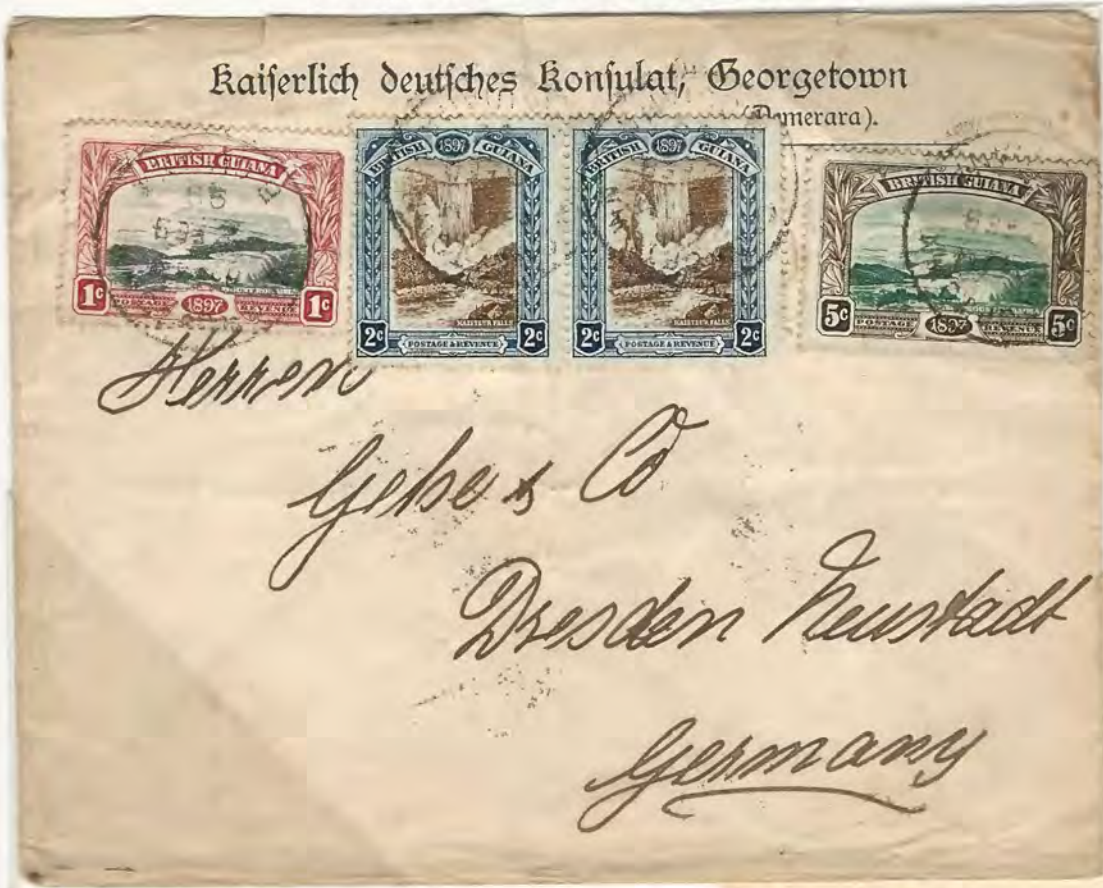 Kaiserlich deutsches Konsulat, Georgetown
(Demerara).
BRITISH GUIANA
1c POSTAGE 1897 REVENUE 1c
BRITISH 1897 GUIANA
KAIETEUR FALLS
2c POSTAGE & REVENUE 2c
BRITISH 1897 GUIANA
KAIETEUR FALLS
2c POSTAGE & REVENUE 2c
BRITISH GUIANA
5c POSTAGE 1897 REVENUE 5c
Herren
Gehe & Co
Dresden Neustadt
Germany